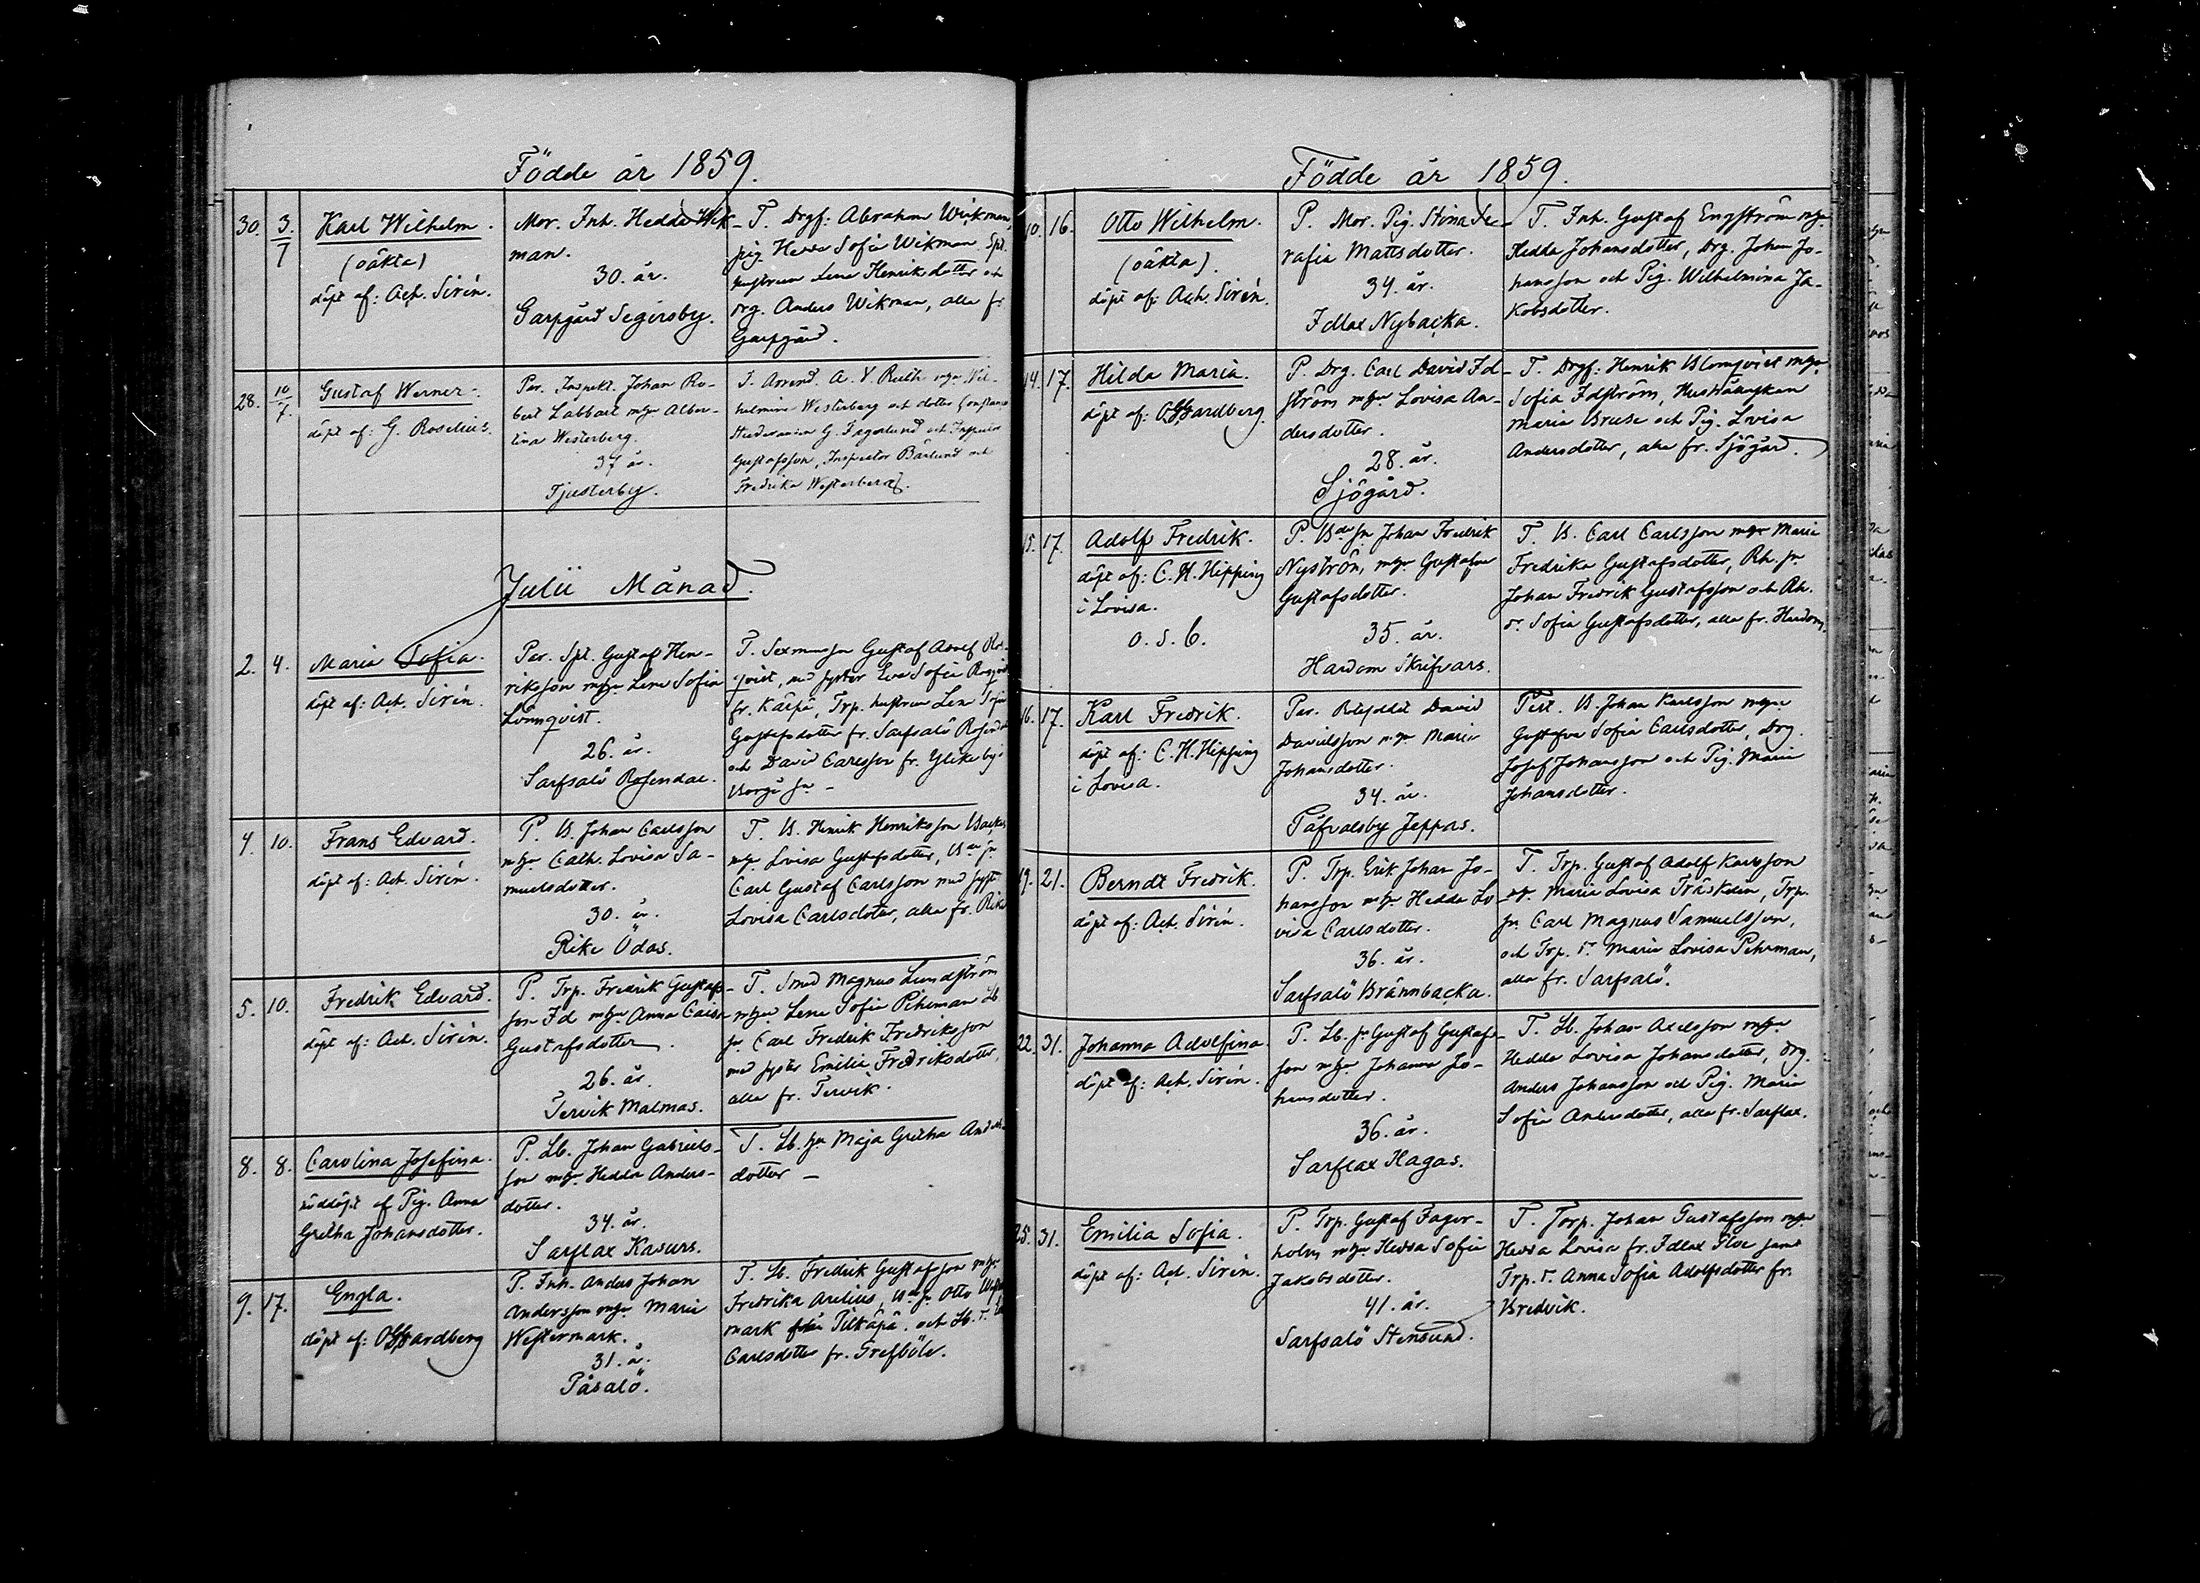 Födde år 1859.
30. 3/7 Karl Wilhelm.
(oäkta)
döpt af: Ach. Sirén.
Mor. Inh. Hedda Wik-
man.
30. år.
Garpgård Segersby.
T. Drgf: Abraham Wikman,
pig. Hedda Sofia Wikman, Spt.
hustrun Lena Henriksdotter och
drg. Anders Wikman, alla fr.
Garpgård.
28. 10/7. Gustaf Werner.
döpt af: G. Roselius.
Par. Inspekt. Johan Ro-
bert Labbart m/hu Alber-
tina Westerberg.
37 år.
Tjusterby.
T. Arrend. A. V. Ruth m/hu Wil-
helmina Westerberg och dotter Constance
G. Fagerlund och
Gustafsson, Inspector Bärlund och
Fredrika Westerberg.
Julii Månad.
2. 4. Maria Sofia.
döpt af: Ach. Sirén.
Par. Spt. Gustaf Hen-
riksson m/hu Lena Sofia
Lönnqvist.
26. år.
Sarfsalö Rosendal.
T. Gustaf Adolf
qvist, med syster Eva Sofia
fr. Käspä, Trp. hustrun Lena Sofia
Gustafsdotter fr. Sarfsalö
och David Carlsson fr.
Borgå sn
4. 10. Frans Edvard.
döpt af: Ach. Sirén.
P. B. Johan Carlsson
m/hu Cath. Lovisa Sa-
muelsdotter.
30. år.
Rike Ödas.
T. B. Henrik Henriksson
m/hu Lovisa Gustafsdotter, Bde sn
Carl Gustaf Carlsson med syst.
Lovisa Carlsdotter, alla fr. Rike
5. 10. Fredrik Edvard.
döpt af: Ach. Sirén.
P. Trp. Fredrik Gustafs-
son Id m/hu Anna Caisa
Gustafsdotter.
26. år.
Tervik Malmas.
T. Smed Magnus Lundström
m/hu Lena Sofia Pihlman Lb
sn Carl Fredrik Fredriksson
med syster Emilia Fredriksdotter,
alla fr. Tervik.
8. 8. Carolina Josefina.
nöddöpt af Pig. Anna
Gretha Johansdotter.
P. Lb. Johan Gabriels-
son m/hu Hedda Anders-
dotter.
34. år.
Sarflax Kasurs.
T. Lb. hu Maja Gretha Anders-
dotter —
9. 17. Engla.
döpt af: O. Hardberg
P. Inh. Anders Johan
Andersson m/hu Maria
Westermark.
31. år.
Påsalö.
T. Lb. Fredrik Gustafsson m/hu
Fredrika Arelius, Bde sn Otto Wester
mark från Pitkäpä. och Lb. dr
Carlsdotter fr. Grefböle.
Födde år 1859.
10. 16. Otto Wilhelm.
(oäkta).
döpt af: Ach. Sirén.
P. Mor. Pig. Stina Se-
rafia Mattsdotter.
34. år.
Idlax Nybacka.
T. Inh. Gustaf Engström m/hu
Hedda Johansdotter, Drg. Johan Jo-
hansson och Pig. Wilhelmina Ja-
kobsdotter.
14. 17. Hilda Maria.
döpt af: O. Hardberg.
P. Drg. Carl David Id-
ström m/hu Lovisa An-
dersdotter.
28. år.
Sjögård.
T. Drgf. Henrik Blomqvist m/hu
Sofia Idström, Hushållerskan
Maria Bruse och Pig. Lovisa
Andersdotter, alla fr. Sjögård.
15. 17. Adolf Fredrik.
döpt af: C. H. Hipping
i Lovisa.
o. s. b.
P. Bde sn Johan Fredrik
Nyström, m/hu Gustafva
Gustafsdotter.
35. år.
Hardom Skrifvars.
T. B. Carl Carlsson m/hu Maria
Fredrika Gustafsdotter, Rh. sn
Johan Fredrik Gustafsson och Rh.
dr Sofia Gustafsdotter, alla fr. Hardom.
16. 17. Karl Fredrik.
döpt af: C. H. Hipping
i Lovisa.
Par. David
Davidsson m/hu Maria
Johansdotter.
34. år.
Påfvalsby Jeppas.
Test. B. Johan Karlsson m/hu
Gustafva Sofia Carlsdotter, Drg.
Josef Johansson och Pig. Maria
Johansdotter.
19. 21. Berndt Fredrik.
döpt af: Ach. Sirén.
P. Trp. Erik Johan Jo-
hansson m/hu Hedda Lo-
visa Carlsdotter.
36. år.
Sarfsalö Brännbacka.
T. Trp. Gustaf Adolf Karlsson
m/hu Maria Lovisa Träskelin, Trp.
sn Carl Magnus Samuelsson,
och Trp. dr Maria Lovisa Pehrman,
alla fr. Sarfsalö.
22. 31. Johanna Adolfina.
döpt af: Ach. Sirén.
P. Lb. sn Gustaf Gustafs-
son m/hu Johanna Jo-
hansdotter.
36. år.
Sarflax Hagas.
T. Lb. Johan Axelsson m/hu
Hedda Lovisa Johansdotter, drg.
Anders Johansson och Pig. Maria
Sofia Andersdotter, alla fr. Sarflax.
25. 31. Emilia Sofia.
döpt af: Ach. Sirén.
P. Trp. Gustaf Fager-
holm m/hu Hedda Sofia
Jakobsdotter.
41. år.
Sarfsalö Stensund.
T. Torp. Johan Gustafsson m/hu
Hedda Lovisa fr. Idlax samt
Trp. dr. Anna Sofia Adolfsdotter fr.
Bredvik.